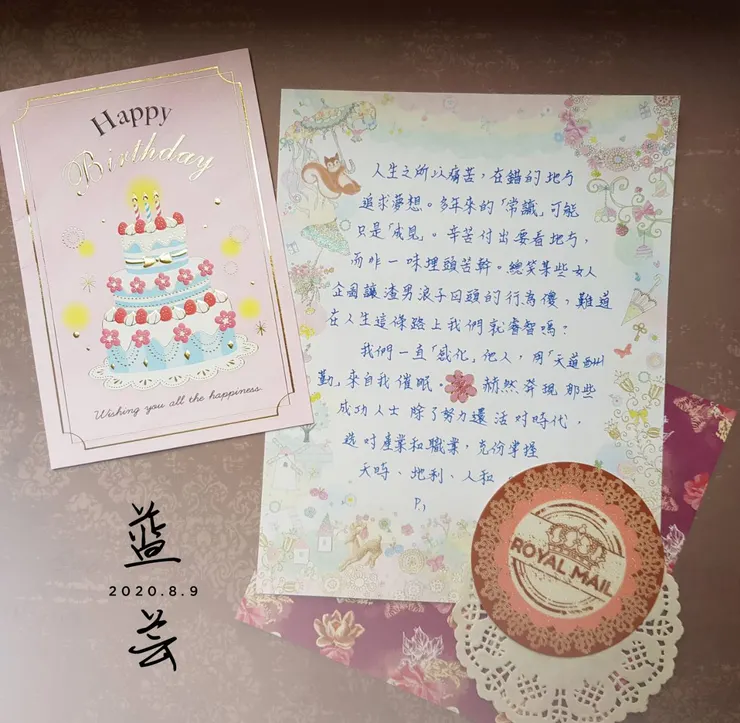 Happy
Birthday
Wishing you all the happiness.
人生之所以痛苦，在錯的地方
追求夢想。多年來的「常識」可能
只是「成見」。辛苦付出要看地方，
而非一味埋頭苦幹。總笑某些女人
企圖讓渣男浪子回頭的行為傻，難道
在人生這條路上我們就睿智嗎？
我們一直「感化」他人，用「天道酬
勤」來自我催眠。赫然發現那些
成功人士除了努力還活對時代，
選對產業和職業，充份掌握
天時、地利、人和
P1
ROYAL MAIL
藍
2020.8.9
芸